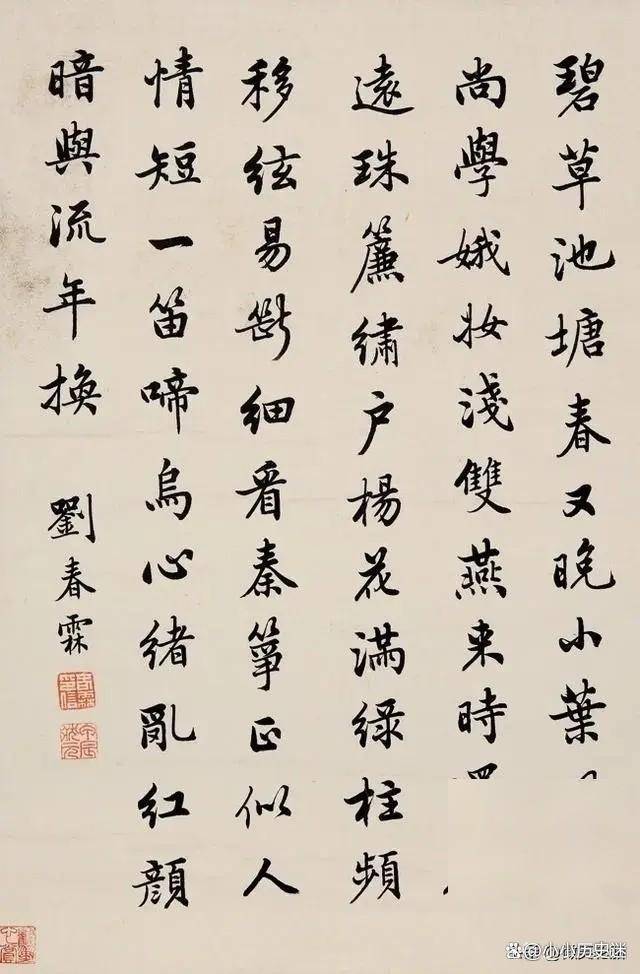 碧草池塘春又晚小葉
尚學娥妝淺雙燕来時
遠珠簾繡户楊花滿綠柱頻
移絃易斷細看秦箏正似人
情短一笛啼烏心緒亂紅顏
暗與流年換
劉春霖